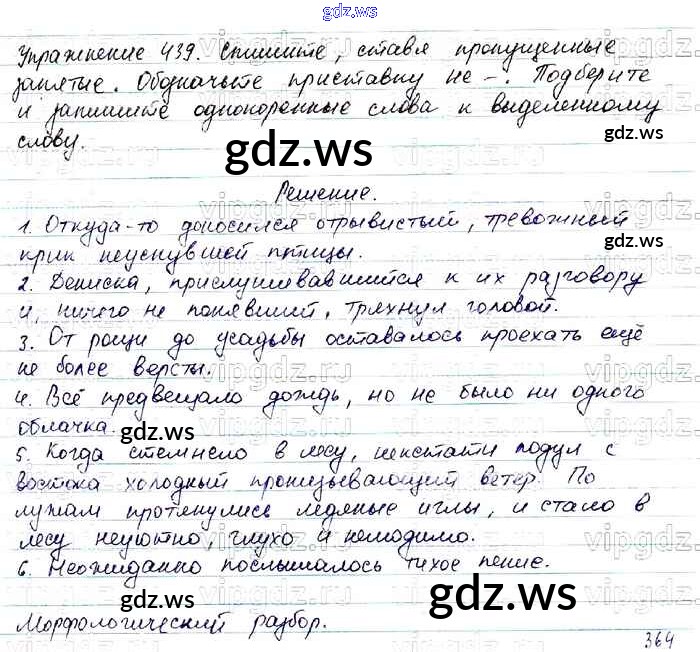 gdz.ws
Упражнение 439. Спишите, ставя пропущенные
запятые. Обозначьте приставку не-. Подберите
и запишите однокоренные слова к выделенному
слову.
gdz.ws
gdz.ws
Решение.
1. Откуда-то доносился отрывистый, тревожный
крик неуснувшей птицы.
2. Дениска, прислушивавшийся к их разговору
и, ничего не понявший, тряхнул головой.
3. От рощи до усадьбы оставалось проехать ещё
не более версты.
4. Всё предвещало дождь, но не было ни одного
облачка.
gdz.ws
gdz.ws
5. Когда стемнело в лесу, некстати подул с
востока холодный пронизывающий ветер. По
лужам протянулись ледяные иглы, и стало в
лесу неуютно, глухо и нелюдимо.
6. Неожиданно послышалось тихое пение.
gdz.ws
gdz.ws
Морфологический разбор.
364